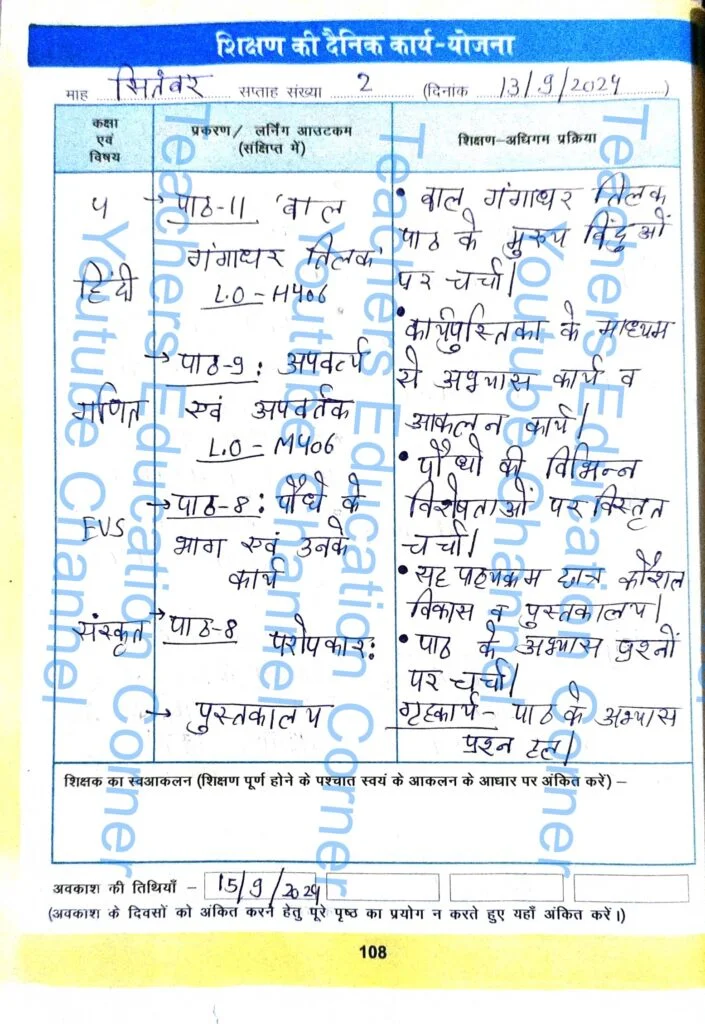 शिक्षण की दैनिक कार्य-योजना
माह सितंबर सप्ताह संख्या 2 (दिनांक 13/9/2024)
कक्षा एवं विषय
प्रकरण/ लर्निंग आउटकम (संक्षिप्त में)
शिक्षण-अधिगम प्रक्रिया
५
हिंदी
→ पाठ-11 'बाल
गंगाधर तिलक'
L.O - H406
गणित
→ पाठ-9 : अपवर्त्य
एवं अपवर्तक
L.O - M406
EVS
→ पाठ-8 : पौधे के
भाग एवं उनके
कार्य
संस्कृत
→ पाठ-8 परोपकार:
→ पुस्तकालय
• बाल गंगाधर तिलक
पाठ के मुख्य बिंदुओं
पर चर्चा।
• कार्यपुस्तिका के माध्यम
से अभ्यास कार्य व
आकलन कार्य।
• पौधों की विभिन्न
विशेषताओं पर विस्तृत
चर्चा।
• सह पाठ्यक्रम छात्र कौशल
विकास व पुस्तकालय।
• पाठ के अभ्यास प्रश्नों
पर चर्चा।
गृहकार्य - पाठ के अभ्यास
प्रश्न हल।
शिक्षक का स्वआकलन (शिक्षण पूर्ण होने के पश्चात स्वयं के आकलन के आधार पर अंकित करें) –
अवकाश की तिथियाँ – 15/9/2024
(अवकाश के दिवसों को अंकित करने हेतु पूरे पृष्ठ का प्रयोग न करते हुए यहाँ अंकित करें।)
108
Teachers Education Corner
Youtube Channel
Teachers Education Corner
Youtube Channel
Teachers Education Corner
Youtube Channel